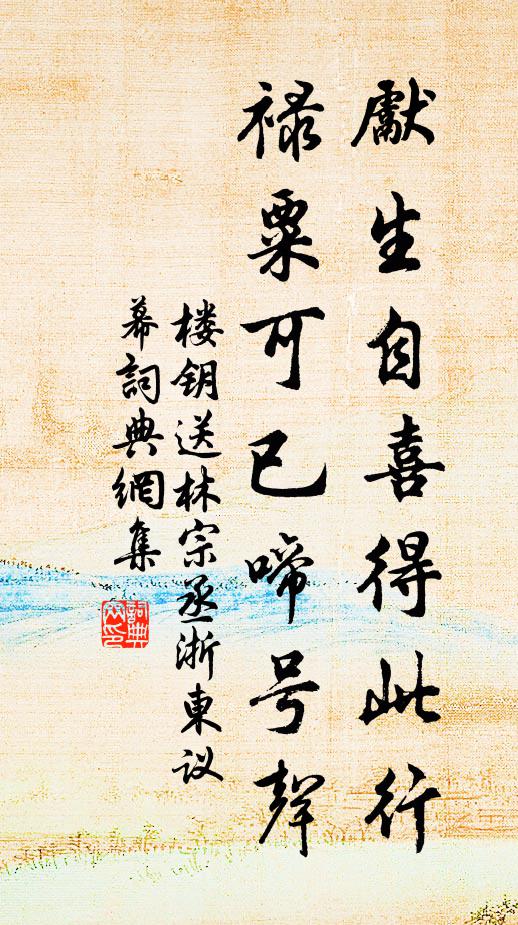 獻生自喜得此行
禄粟可已啼号聲
楼钥送林宗丞浙東议
幕詞典網集
詞典